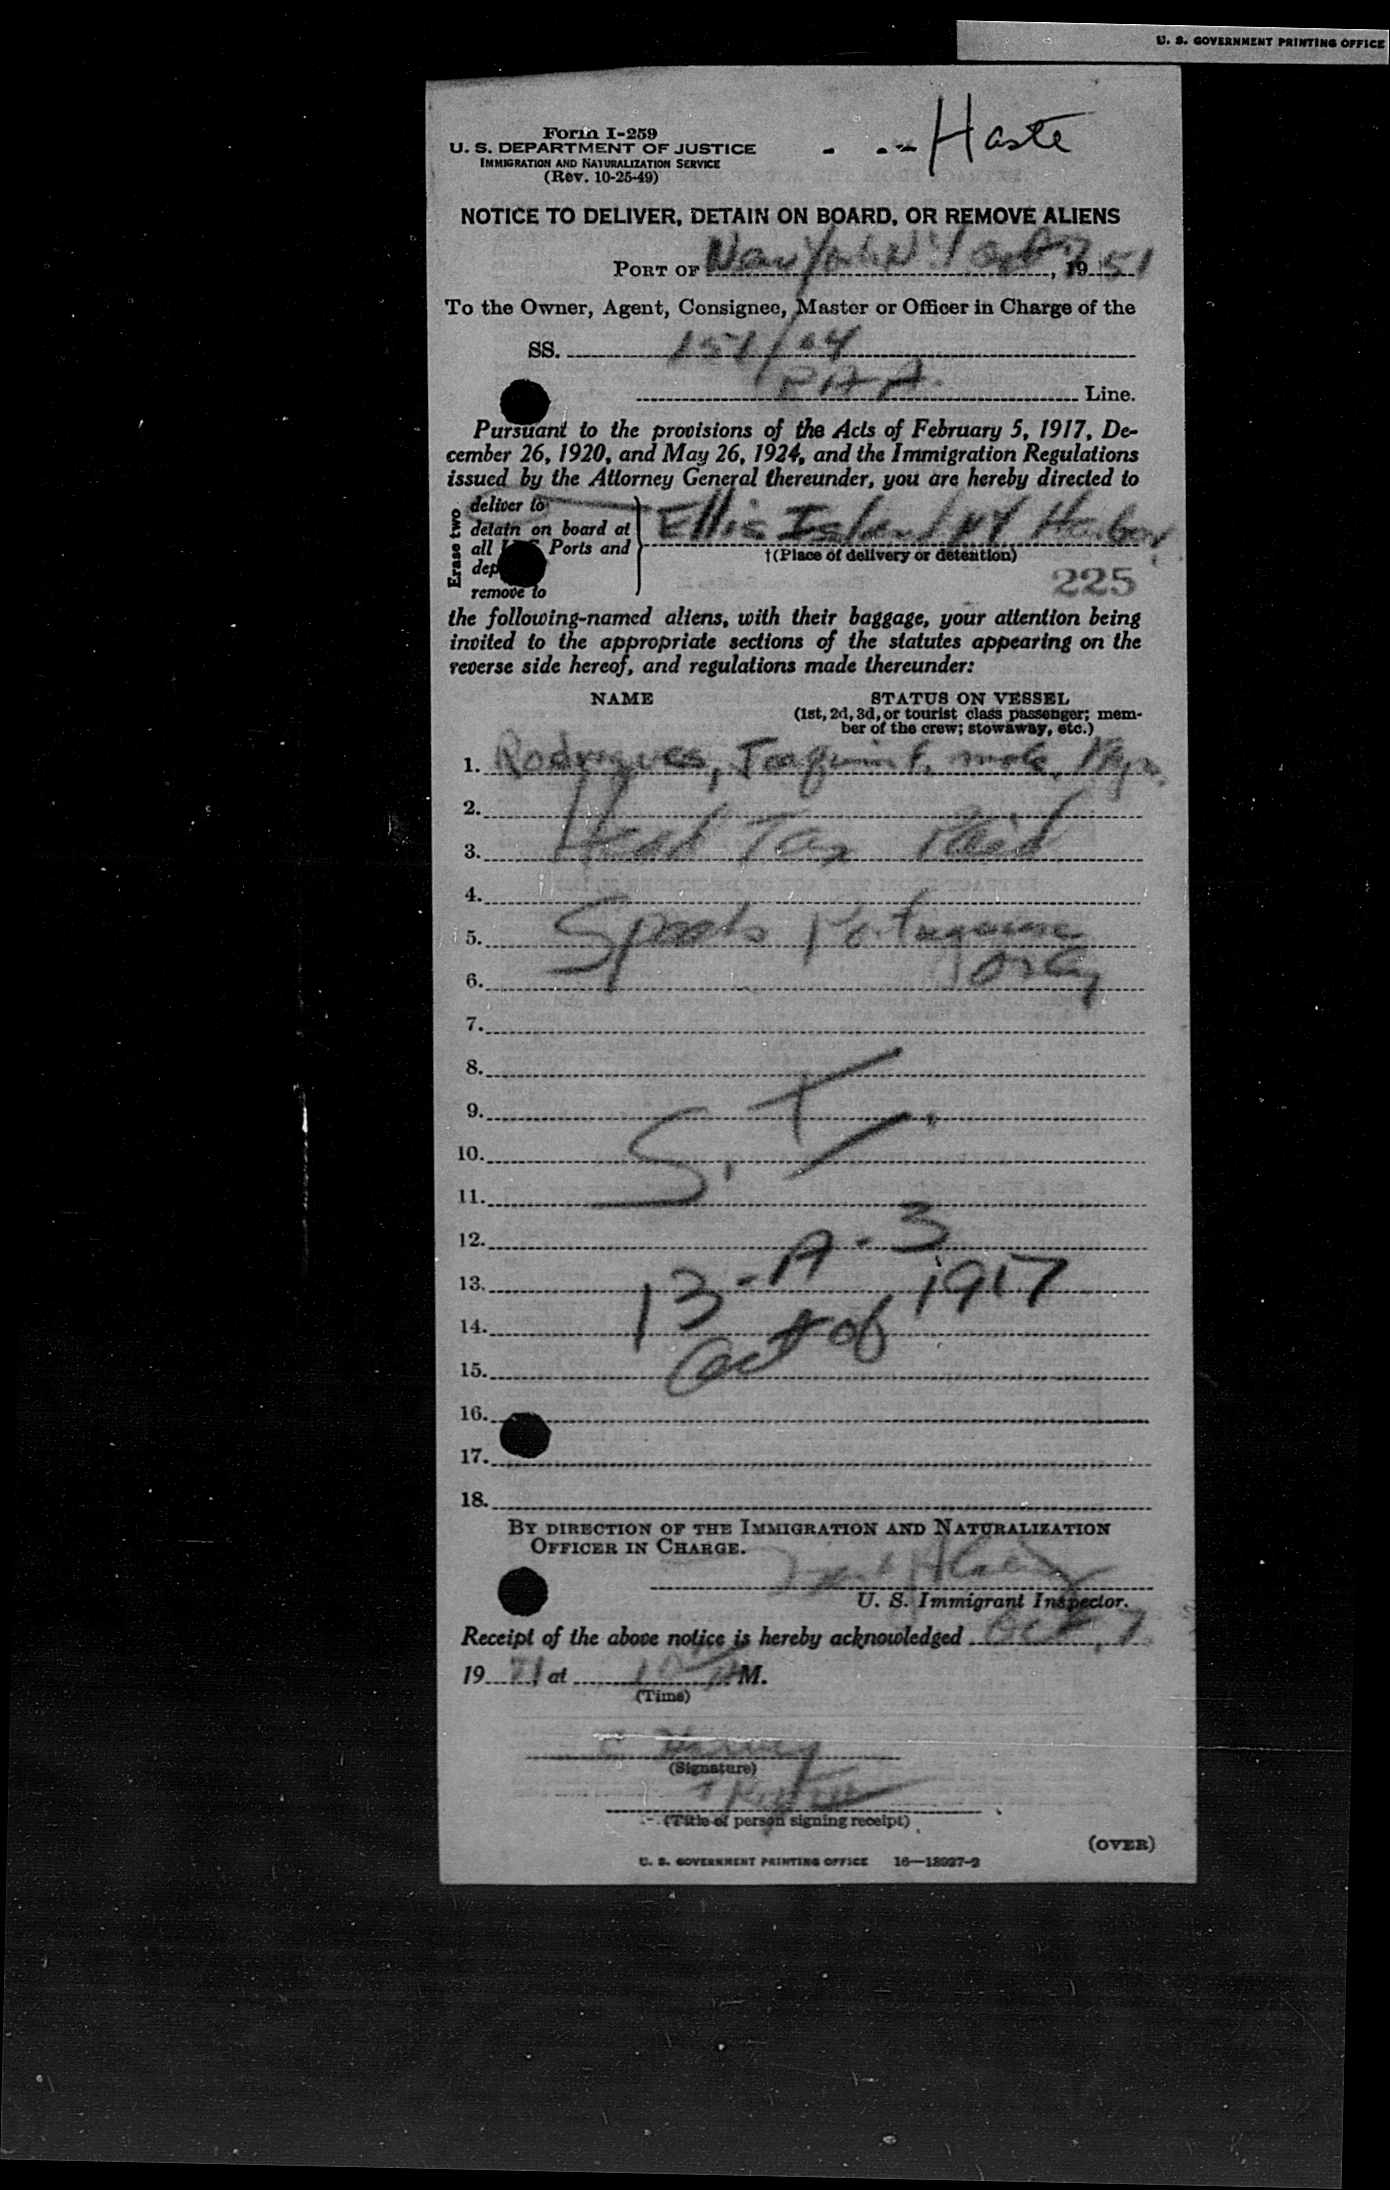 U. S. GOVERNMENT PRINTING OFFICE
Form I-259
U. S. DEPARTMENT OF JUSTICE
IMMIGRATION AND NATURALIZATION SERVICE
(Rev. 10-25-49)
Haste
NOTICE TO DELIVER, DETAIN ON BOARD, OR REMOVE ALIENS
PORT OF New York N.Y. Oct 7, 1951
To the Owner, Agent, Consignee, Master or Officer in Charge of the
SS. 151/04
PAA Line.
Pursuant to the provisions of the Acts of February 5, 1917, De-
cember 26, 1920, and May 26, 1924, and the Immigration Regulations
issued by the Attorney General thereunder, you are hereby directed to
Erase two
deliver to
detain on board at
all Ports and
dep
remove to
Ellis Island NY Harbor
†(Place of delivery or detention)
225
the following-named aliens, with their baggage, your attention being
invited to the appropriate sections of the statutes appearing on the
reverse side hereof, and regulations made thereunder:
NAME
STATUS ON VESSEL
(1st, 2d, 3d, or tourist class passenger; mem-
ber of the crew; stowaway, etc.)
1. Rodrigues, Joaquim F. male,
2.
3. Head Tax Paid
4.
5. Speaks Portuguese
6. only
7.
8.
9.
10. S. I.
11.
12.
13. 13-A-3
14. Act of 1917
15.
16.
17.
18.
BY DIRECTION OF THE IMMIGRATION AND NATURALIZATION
OFFICER IN CHARGE.
U. S. Immigrant Inspector.
Receipt of the above notice is hereby acknowledged Oct, 7
19 51 at AM.
(Time)
(Signature)
(Title of person signing receipt)
(OVER)
U. S. GOVERNMENT PRINTING OFFICE 16—18927-2